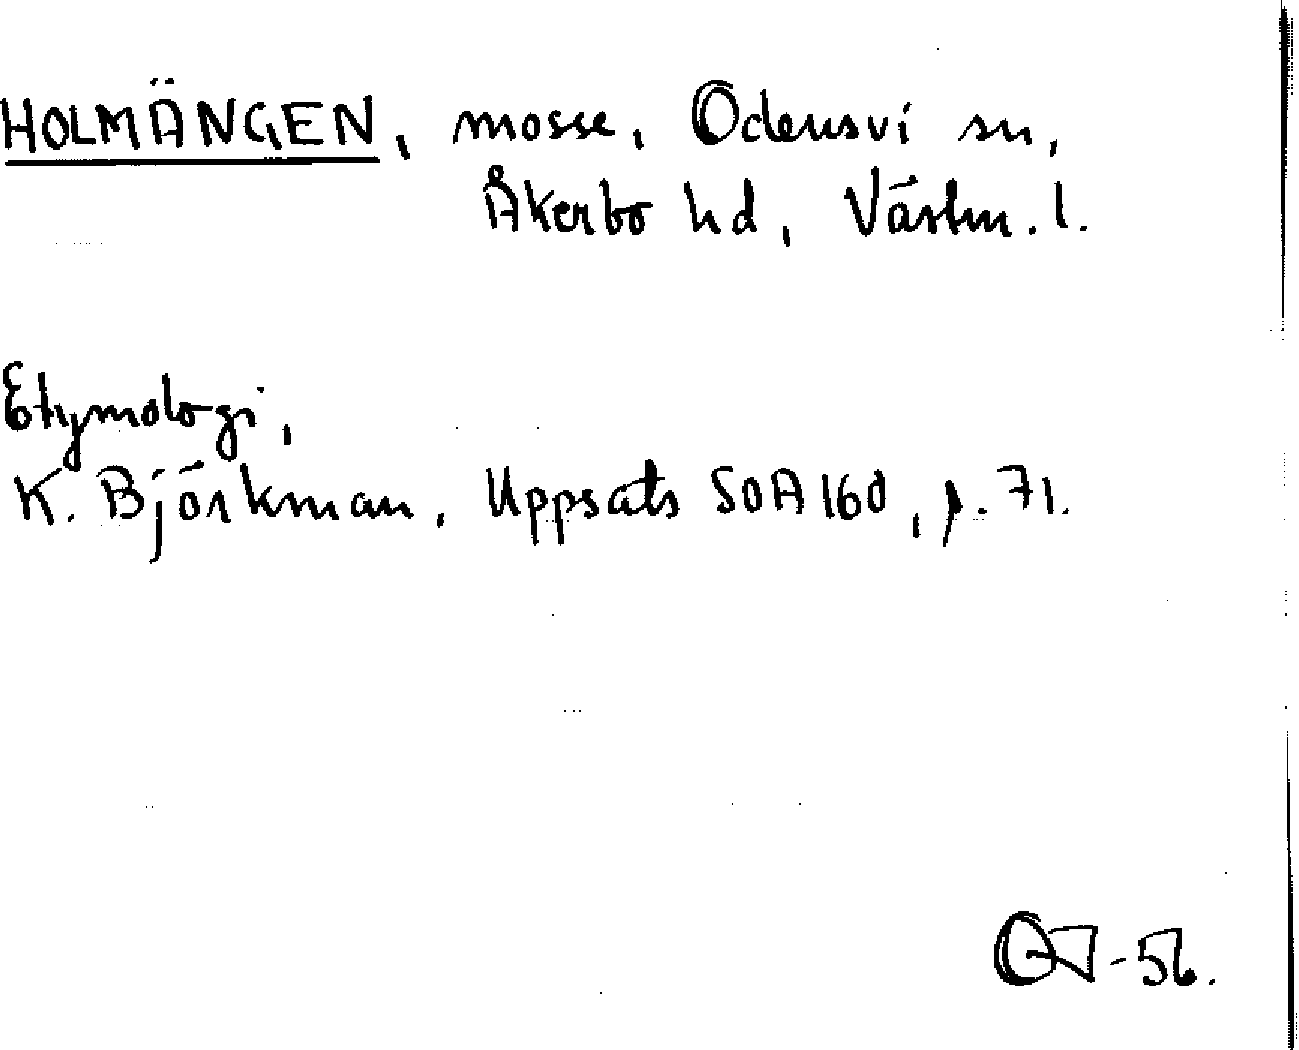 HOLMÄNGEN, mosse, Odensvi sn,
Åkerbo hd, Västm. l.
Etymologi,
K. Björkman, Uppsats SOA 160, p. 71.
-56.